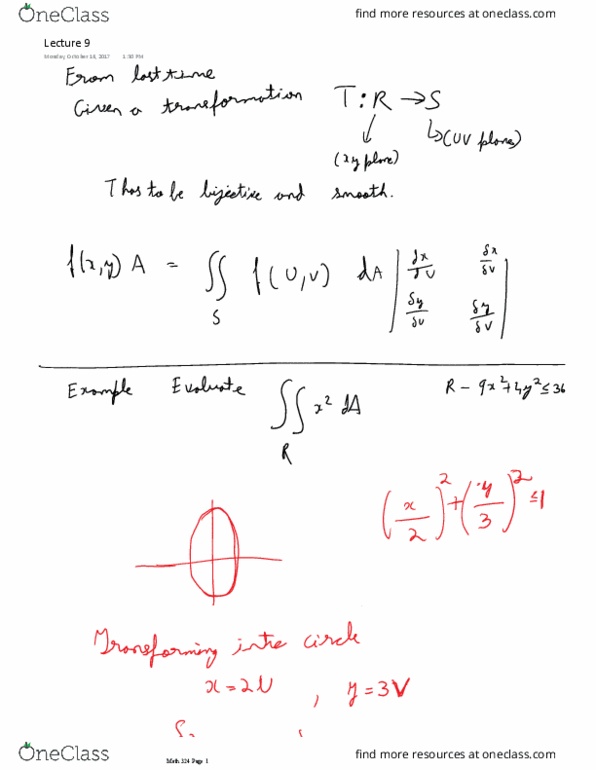 OneClass
find more resources at oneclass.com
Lecture 9
Monday, October 16, 2017 1:30 PM
From last time
Given a transformation T : R → S
(xy plane) (UV plane)
T has to be bijective and smooth.
f(x,y) A = ∬ f(U,V) dA | δx/δU δx/δV |
S | δy/δU δy/δV |
Example Evaluate ∬ x² dA R - 9x²+4y² ≤ 36
R
(x/2)² + (y/3)² ≤ 1
Transforming into circle
x = 2U , y = 3V
OneClass
Math 324 Page 1
find more resources at oneclass.com